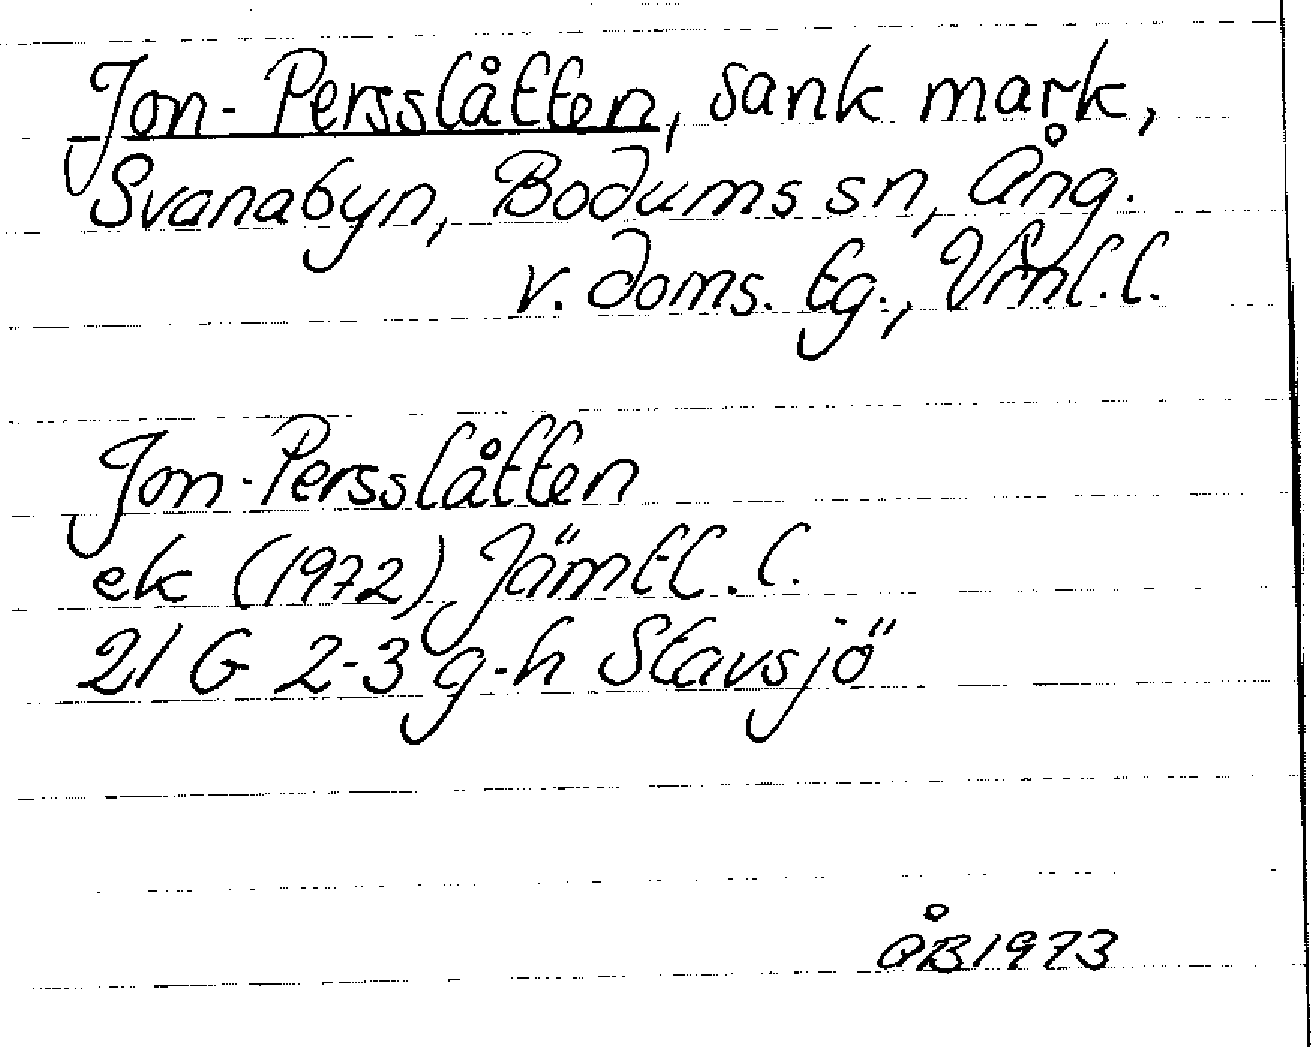 Jon-Persslåtten, sank mark,
Svanabyn, Bodums sn, Ång.
v. doms. tg., Vrnl. l.
Jon-Persslåtten
ek (1972) Jämtl. l.
21 G 2-3 g-h Stavsjö
ÅB 1973